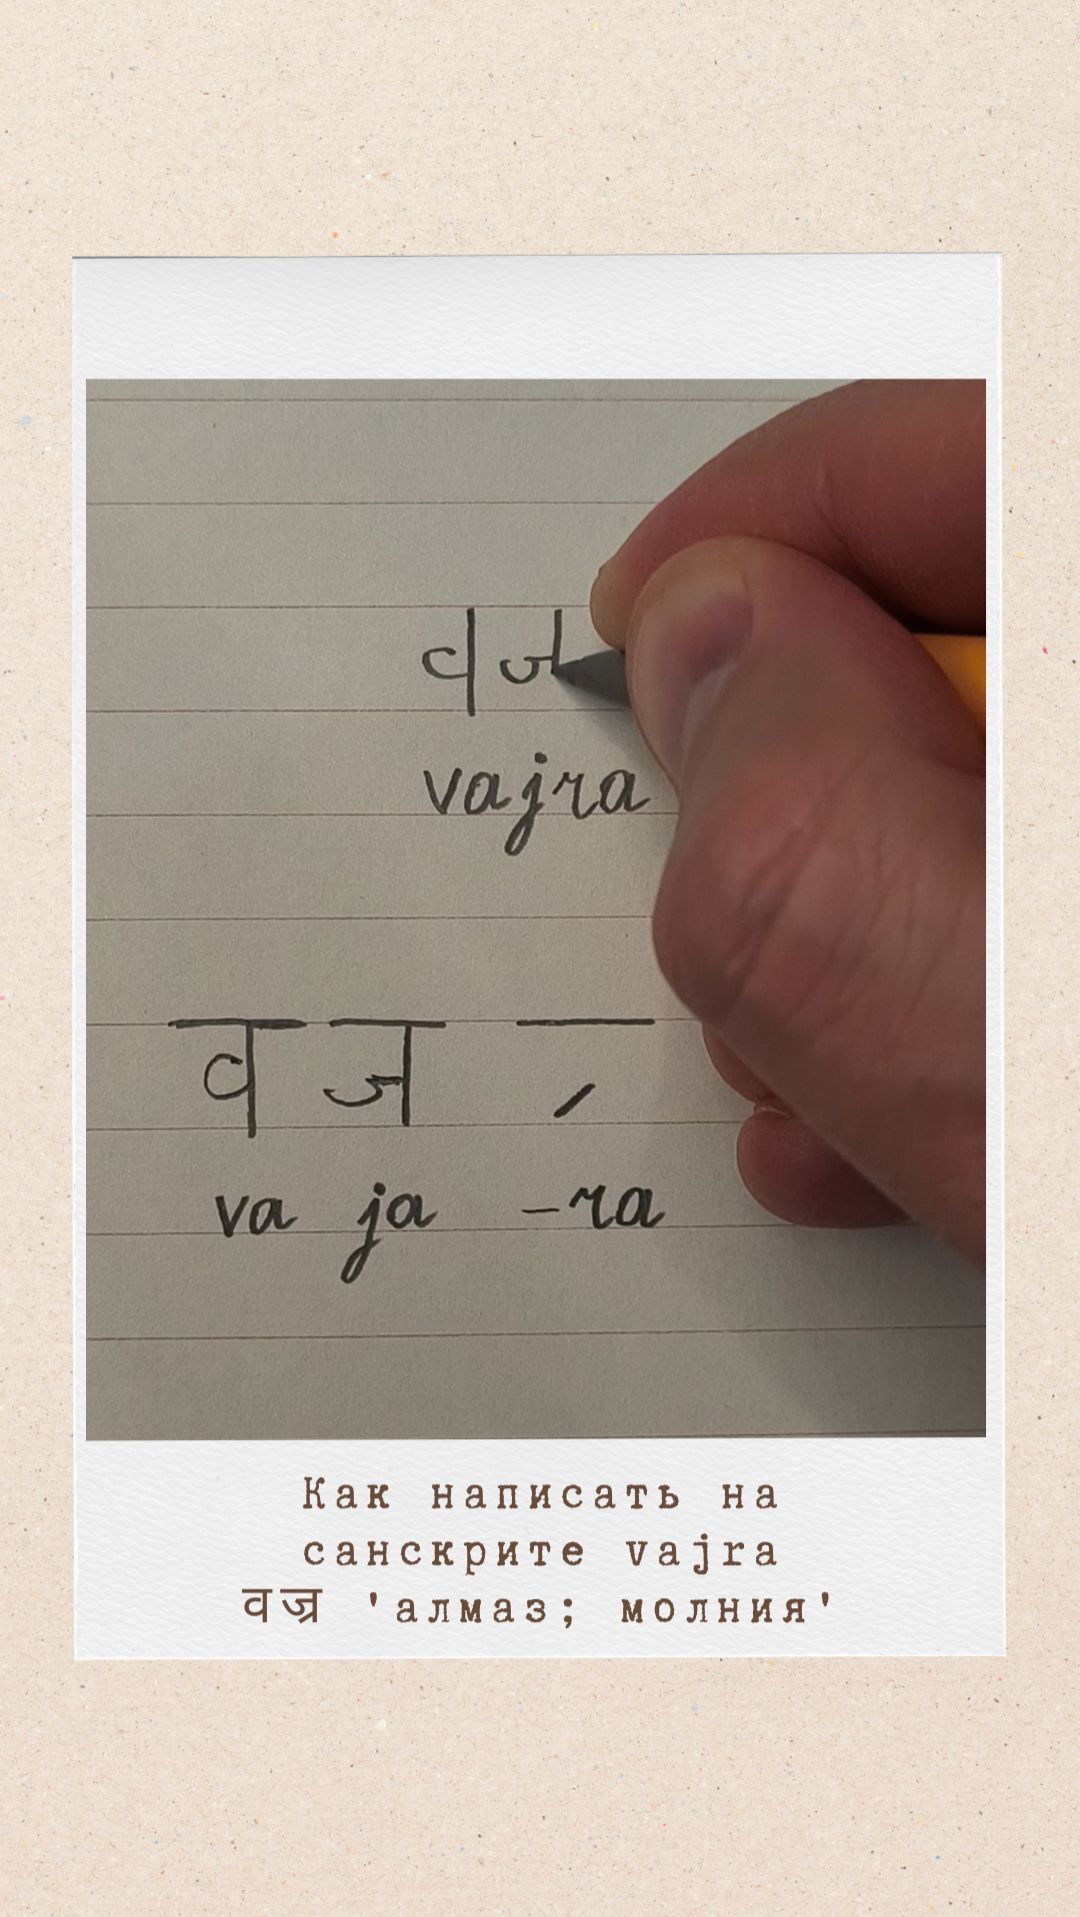 वज
vajra
व ज ‾ ⸝
va ja -ra
Как написать на
санскрите vajra
वज्र 'алмаз; молния'